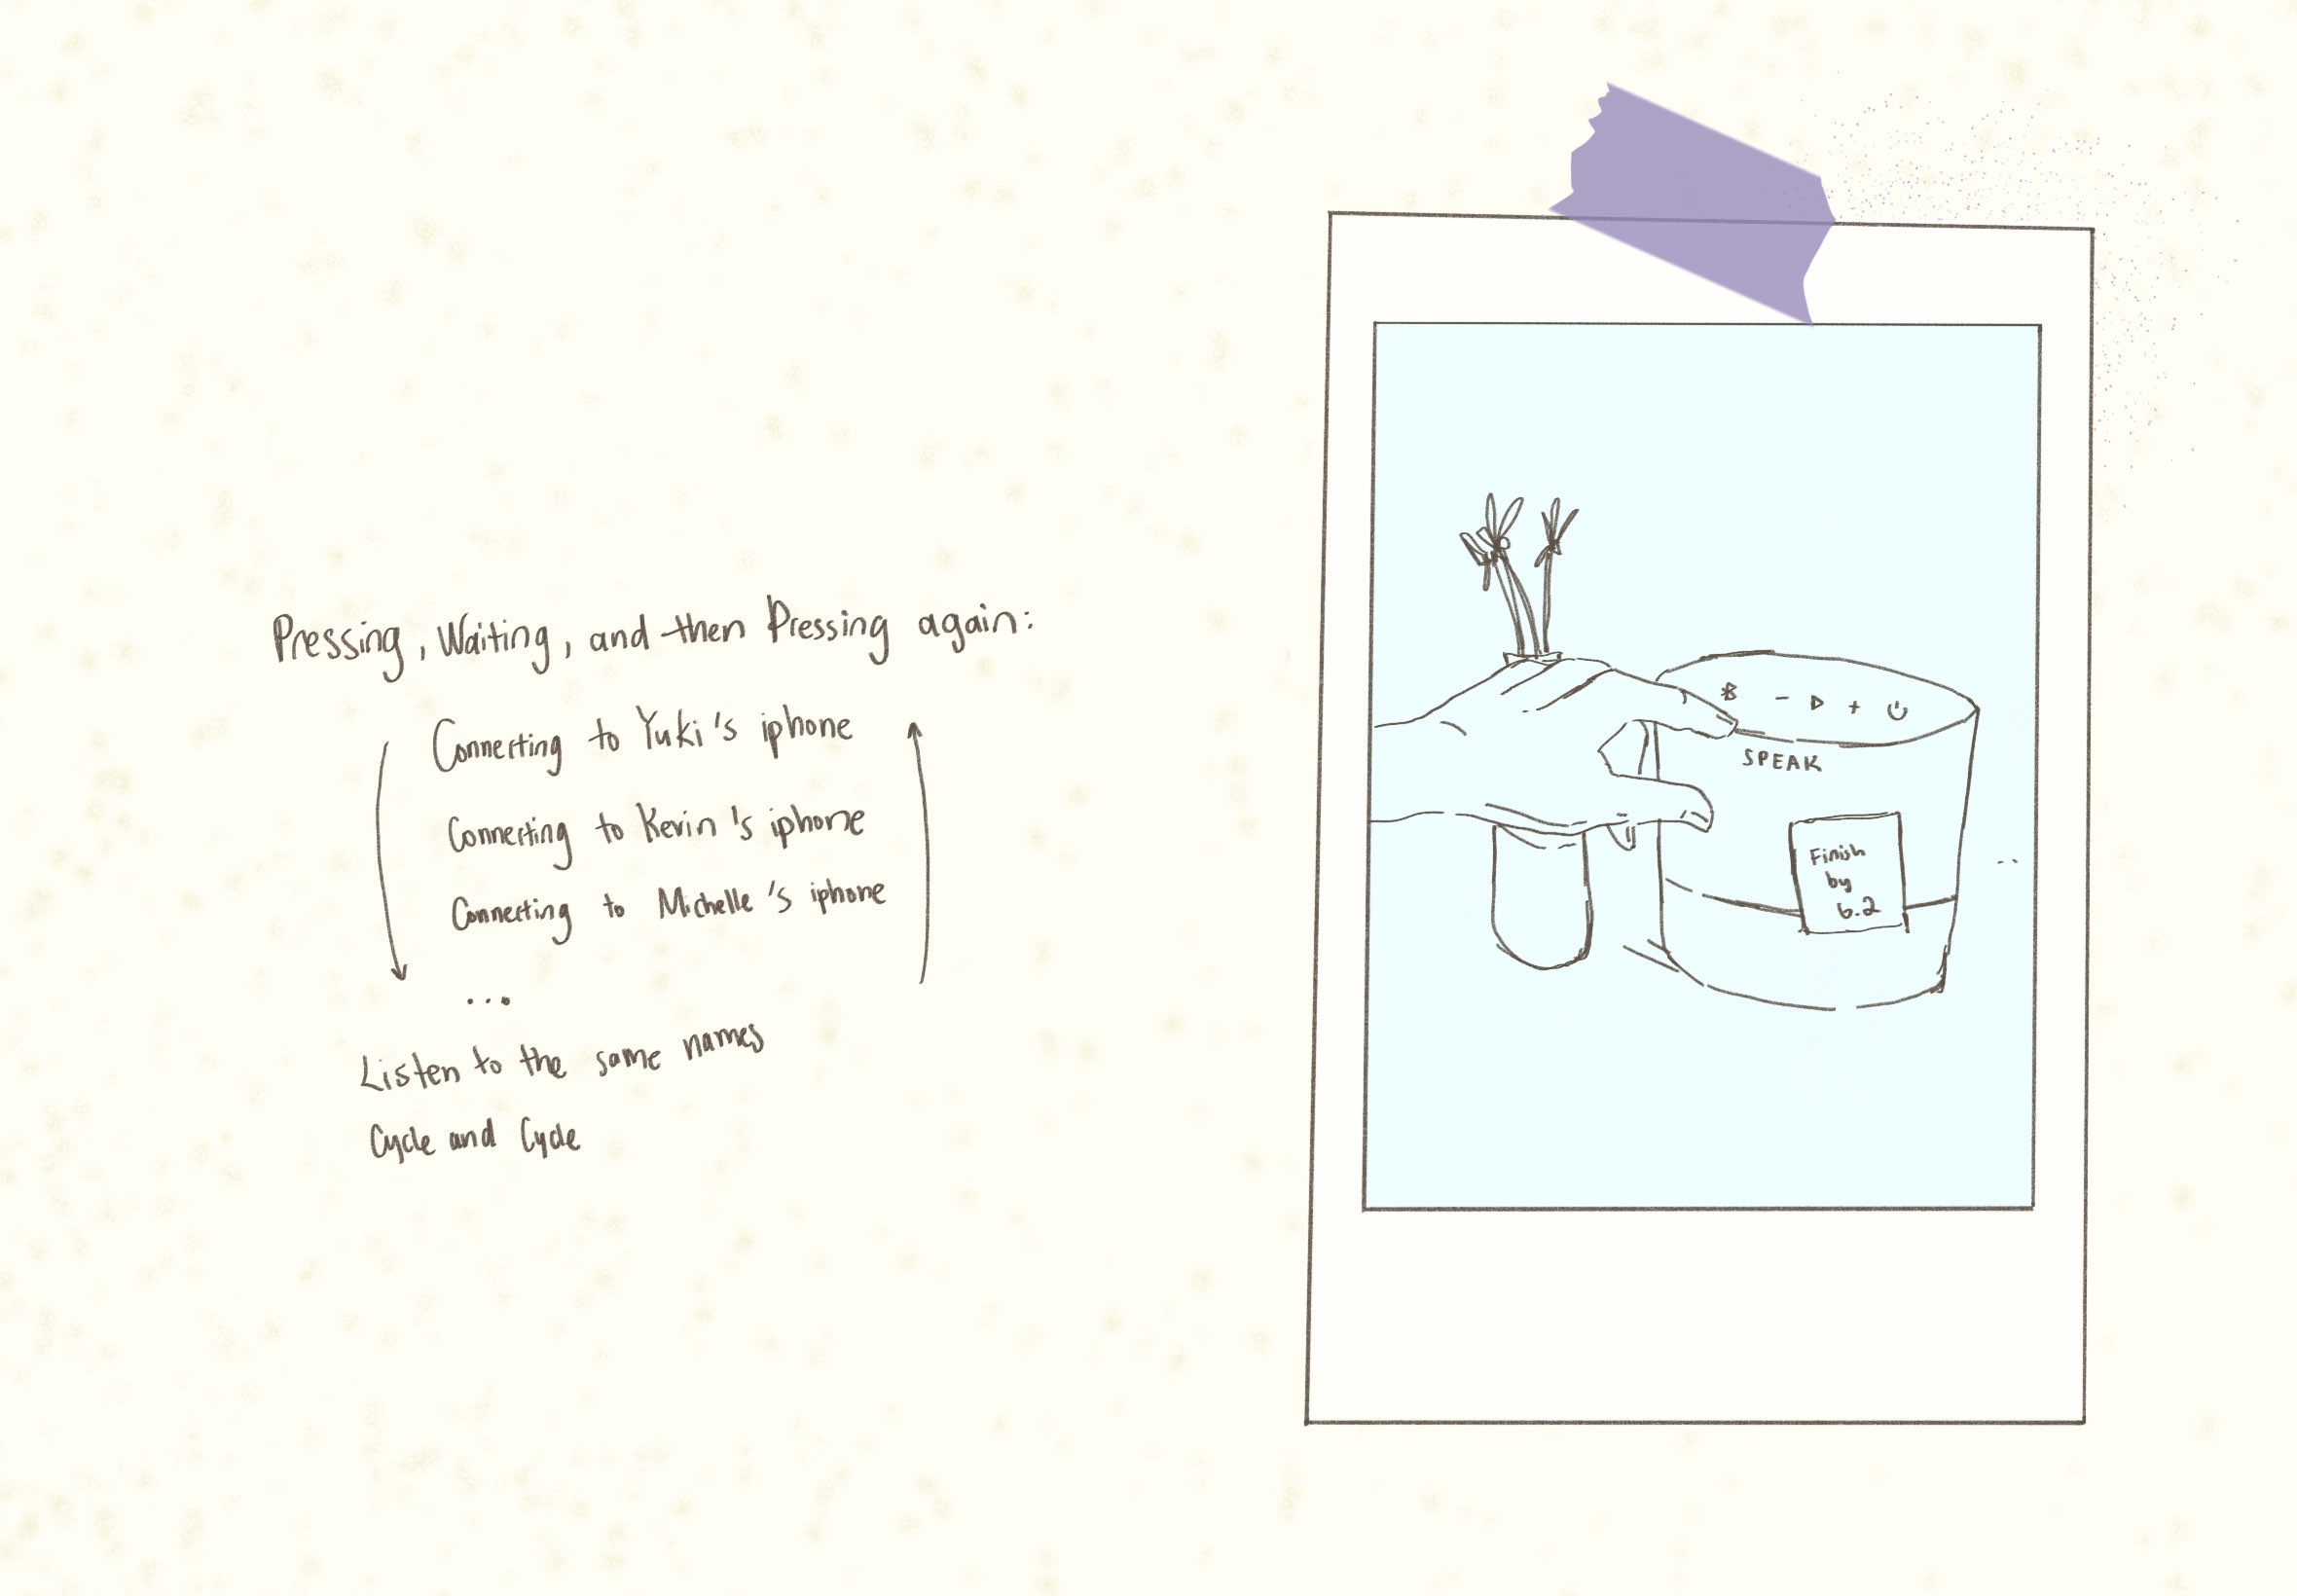 Pressing, Waiting, and then Pressing again:
Connecting to Yuki's iphone
Connecting to Kevin's iphone
Connecting to Michelle's iphone
...
Listen to the same names
Cycle and Cycle
SPEAK
Finish
by
6.2